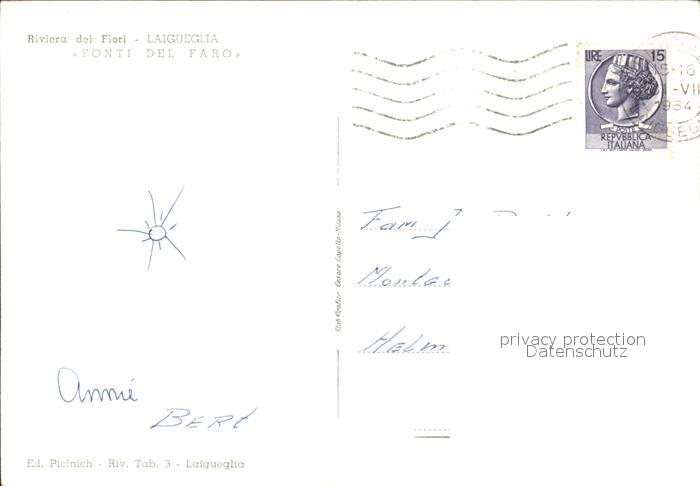 Riviera dei Fiori - LAIGUEGLIA
«FONTI DEL FARO»
LIRE 15
POSTE
REPVBBLICA
ITALIANA
15-16
-VII
1964
Fam J
Montac
Helm
privacy protection
Datenschutz
Annie
Bert
Ed. Picinich - Riv. Tab. 3 - Laigueglia